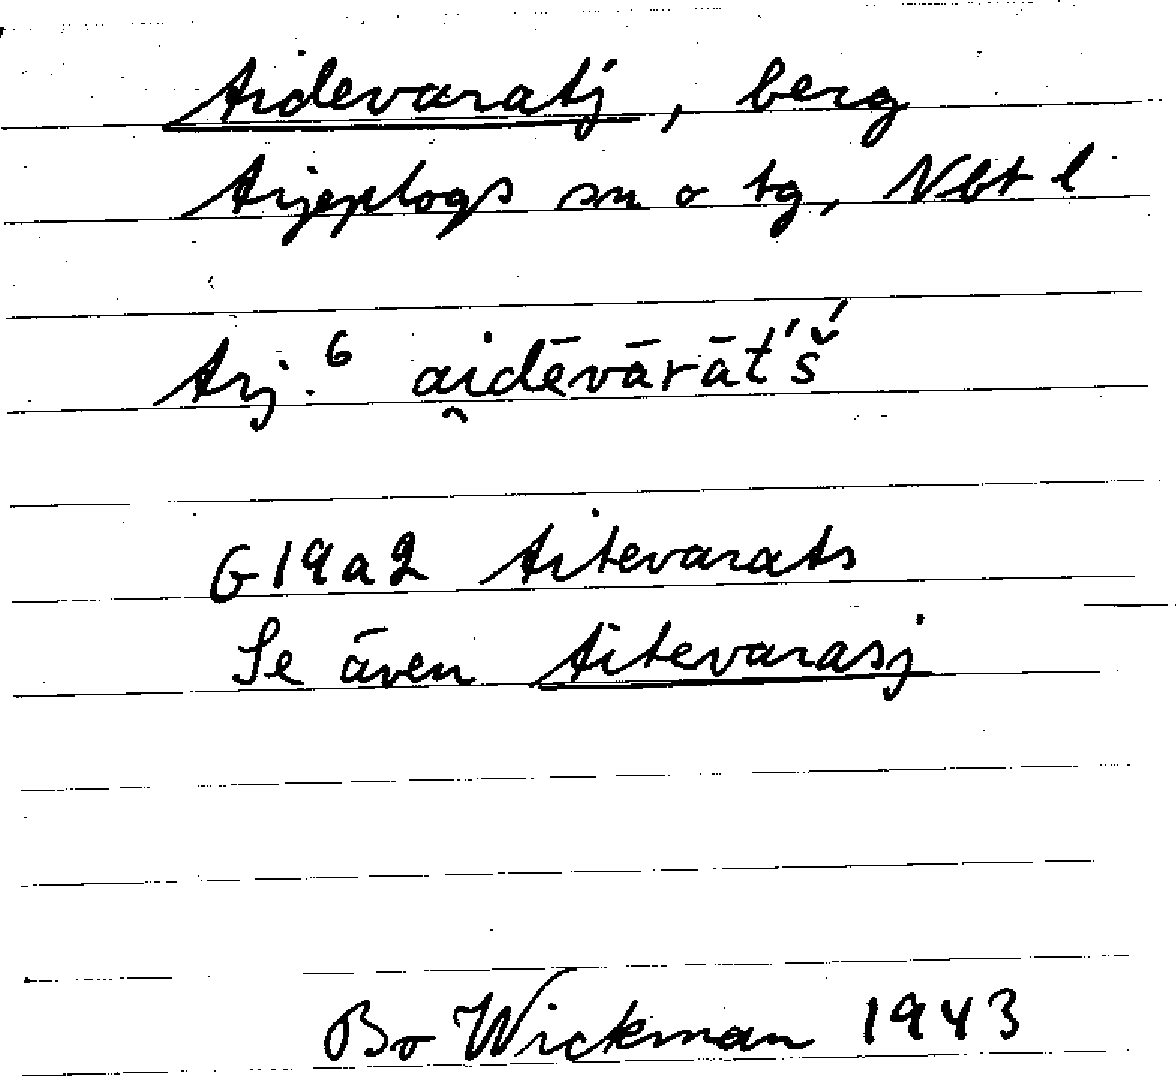 Aidevaratj, berg
Arjeplogs sn o tg, Nbt l
Arj.⁶ ai̯dēvārāt́š́
G19a2 Aitevarats
Se även Aitevarasj
Bo Wickman 1943